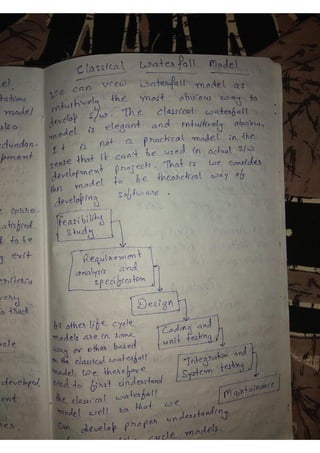 Classical Waterfall Model
We can view waterfall model as
intuitively the most obvious way to
develop S/W. The classical waterfall
model is elegant and intuitively obvious.
It is not a practical model in the
sense that it can't be used in actual S/W
development projects. That is we consider
this model to be theoretical way of
developing software.
Feasibility
Study
Requirement
analysis and
specification
Design
Coding and
unit testing
Integration and
System testing
Maintainance
As other life cycle
models are in some
way or other based
on the classical waterfall
model, we therefore
need to first understand
the classical waterfall
model well so that we
can develop proper understanding
cycle models.
model
pement
to be
exit
track
developed